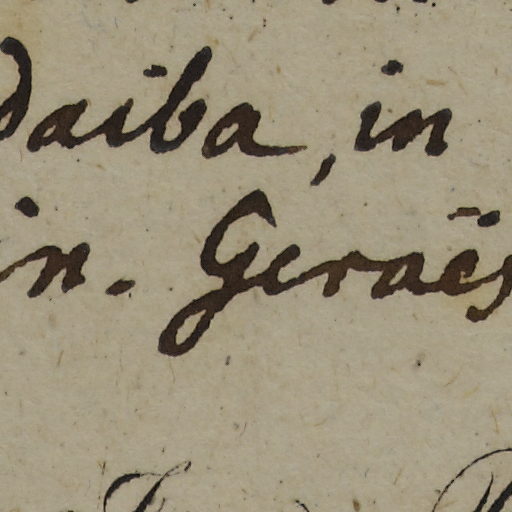 daiba, in
in. Geraës